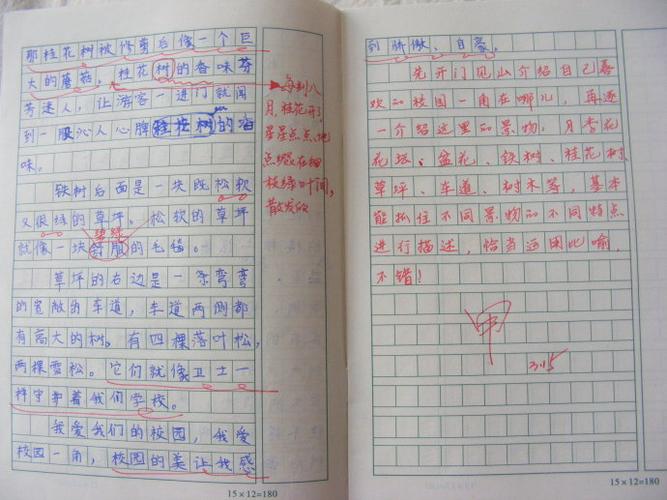 那桂花树被修剪后像一个巨
大的蘑菇。桂花树的香味芬
芳迷人,让游客一进门就闻
到一股沁人心脾桂花树的
味。
铁树后面是一块既松软
又很绿的草坪。松软的草坪
碧绿
就像一块舒服的毛毯。
草坪的右边是一条弯弯
的宽敞的车道,车道两侧都
有高大的树。有四棵落叶松,
两棵雪松。它们就像卫士一
样守护着我们学校。
我爱我们的校园,我爱
校园一角,校园的美让我感
每到八
月,桂花开了,
星星点点地
点缀在细
枝绿叶间,
散发的
15×12=180
到骄傲、自豪。
先开门见山介绍自己喜
欢的校园一角在哪儿,再逐
一介绍这里的景物,月季花
花坛、盆花、铁树、桂花树、
草坪、车道、树木等,基本
能抓住不同景物的不同特点
进行描述,恰当运用比喻,
不错!
甲
15×12=180